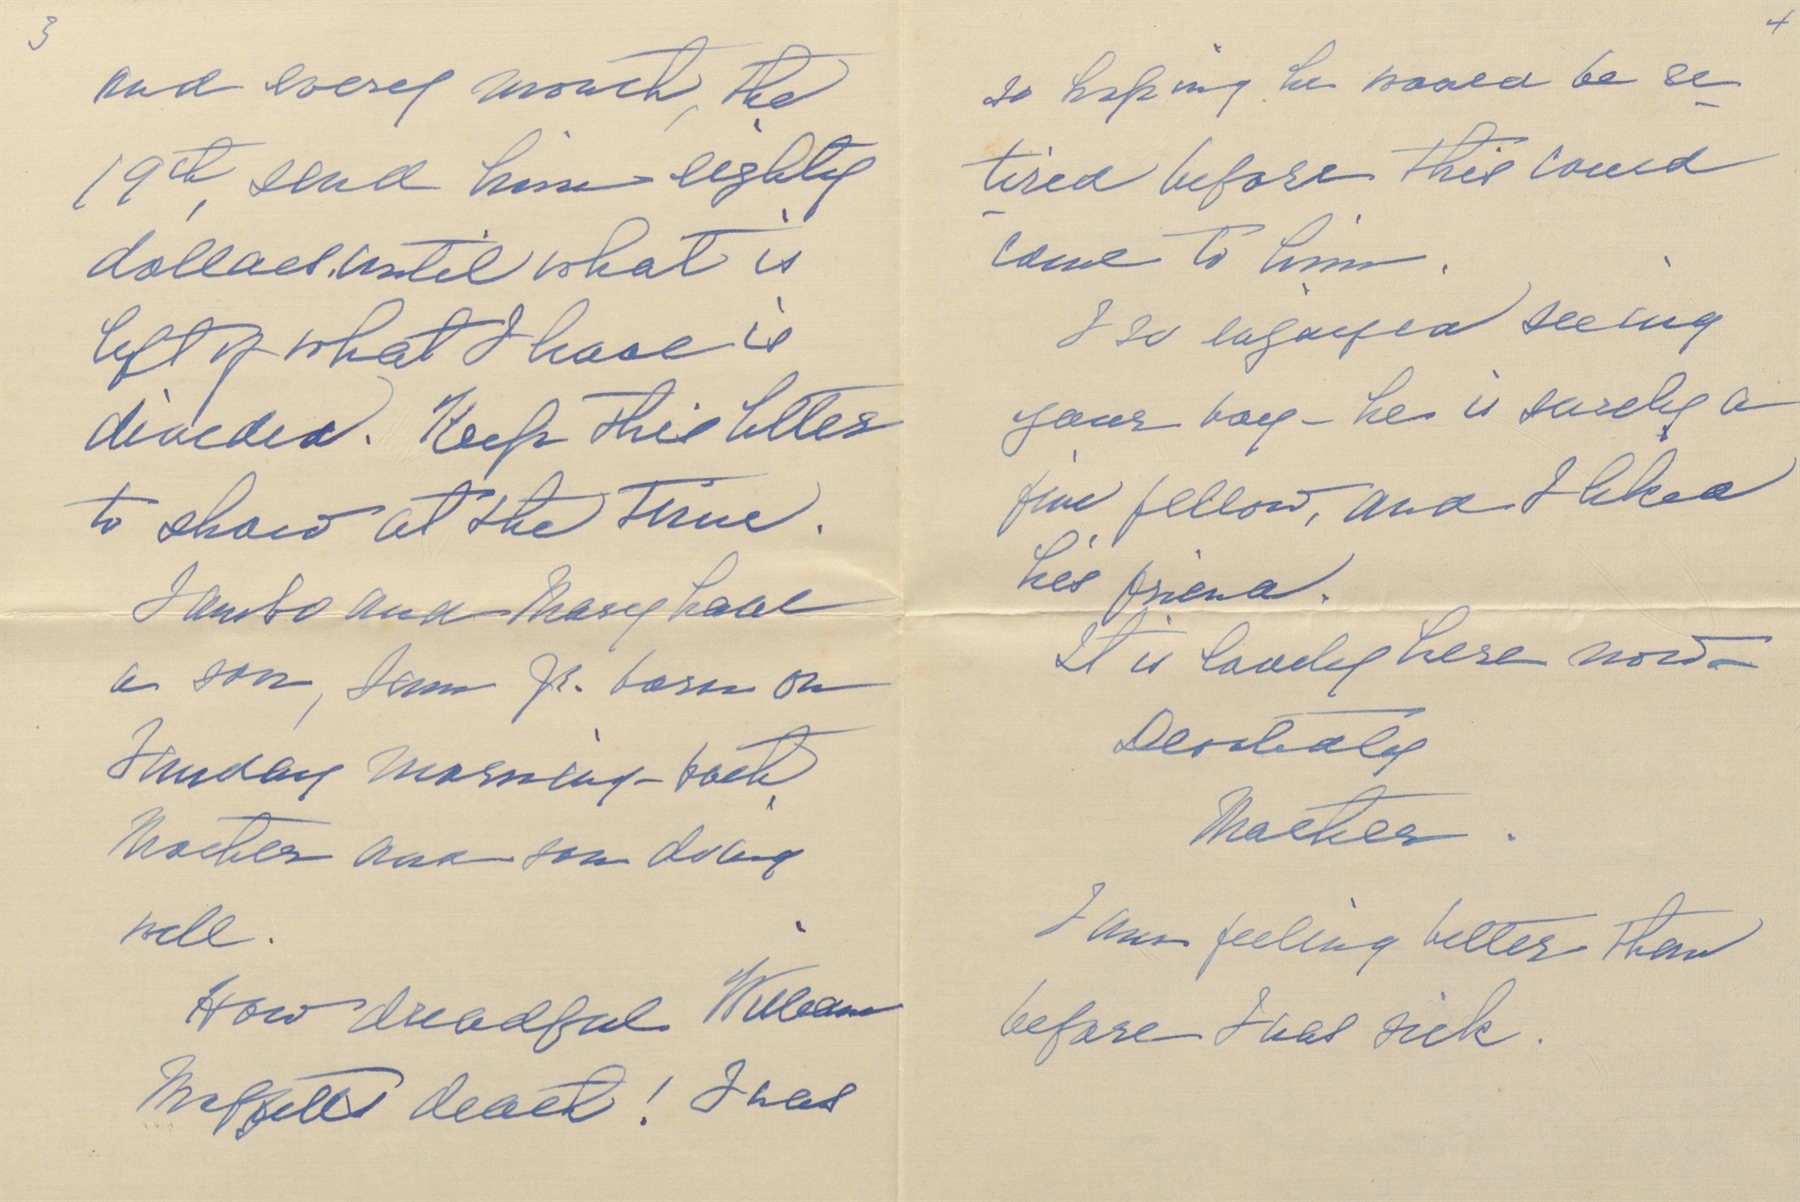 3
and every month, the
19th, send him eighty
dollars, until what is
left of what I have is
divided. Keep this letter
to show at the time.
and Mary have
a son, Sam Jr. born on
Sunday morning - both
Mother and son doing
well.
How dreadful William
Moffett's death! I was
4
so hoping he would be re-
tired before this could
come to him.
I so enjoyed seeing
your boy - he is surely a
fine fellow, and I liked
his friend.
It is lovely here now -
Devotedly
Mother.
I am feeling better than
before I was sick.